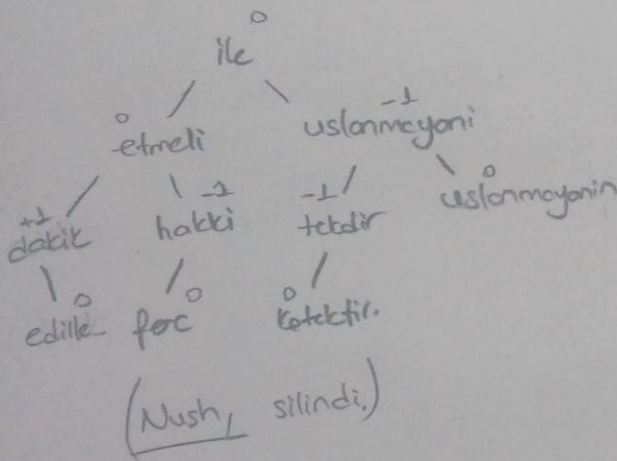 0
ile
0 -1
etmeli uslanmayani
+1 -1 -1 0
dakik hakki tekdir uslanmayanin
0 0 0
edille ferc kotektir.
(Nush, silindi.)